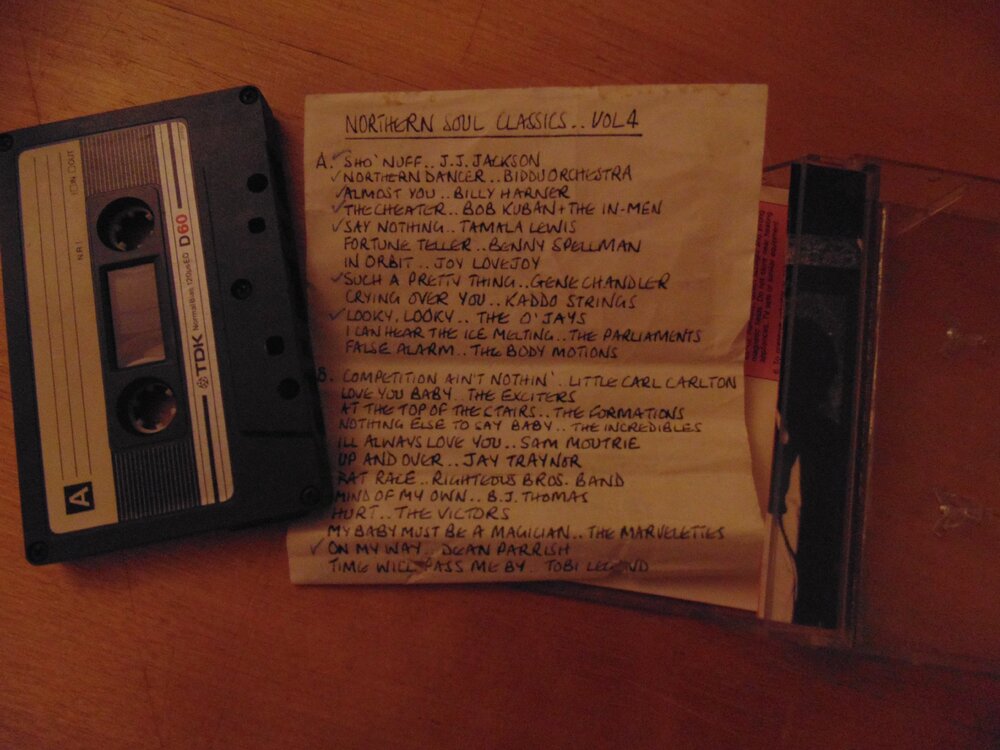 NORTHERN SOUL CLASSICS.. VOL 4
A. SHO' NUFF.. J.J. JACKSON
NORTHERN DANCER.. BIDDU ORCHESTRA
ALMOST YOU.. BILLY HARNER
THE CHEATER.. BOB KUBAN + THE IN-MEN
SAY NOTHING.. TAMALA LEWIS
FORTUNE TELLER.. BENNY SPELLMAN
IN ORBIT.. JOY LOVEJOY
SUCH A PRETTY THING.. GENE CHANDLER
CRYING OVER YOU.. KADDO STRINGS
LOOKY, LOOKY.. THE O'JAYS
I CAN HEAR THE ICE MELTING.. THE PARLIAMENTS
FALSE ALARM.. THE BODY MOTIONS
B. COMPETITION AIN'T NOTHIN'.. LITTLE CARL CARLTON
LOVE YOU BABY.. THE EXCITERS
AT THE TOP OF THE STAIRS.. THE FORMATIONS
NOTHING ELSE TO SAY BABY.. THE INCREDIBLES
ILL ALWAYS LOVE YOU.. SAM MOUTRIE
UP AND OVER.. JAY TRAYNOR
RAT RACE.. RIGHTEOUS BROS. BAND
MIND OF MY OWN.. B.J. THOMAS
HURT.. THE VICTORS
MY BABY MUST BE A MAGICIAN.. THE MARVELETTES
ON MY WAY.. DEAN PARRISH
TIME WILL PASS ME BY.. TOBI
A
TDK Normal Bias 120µs EQ D60
N.R.